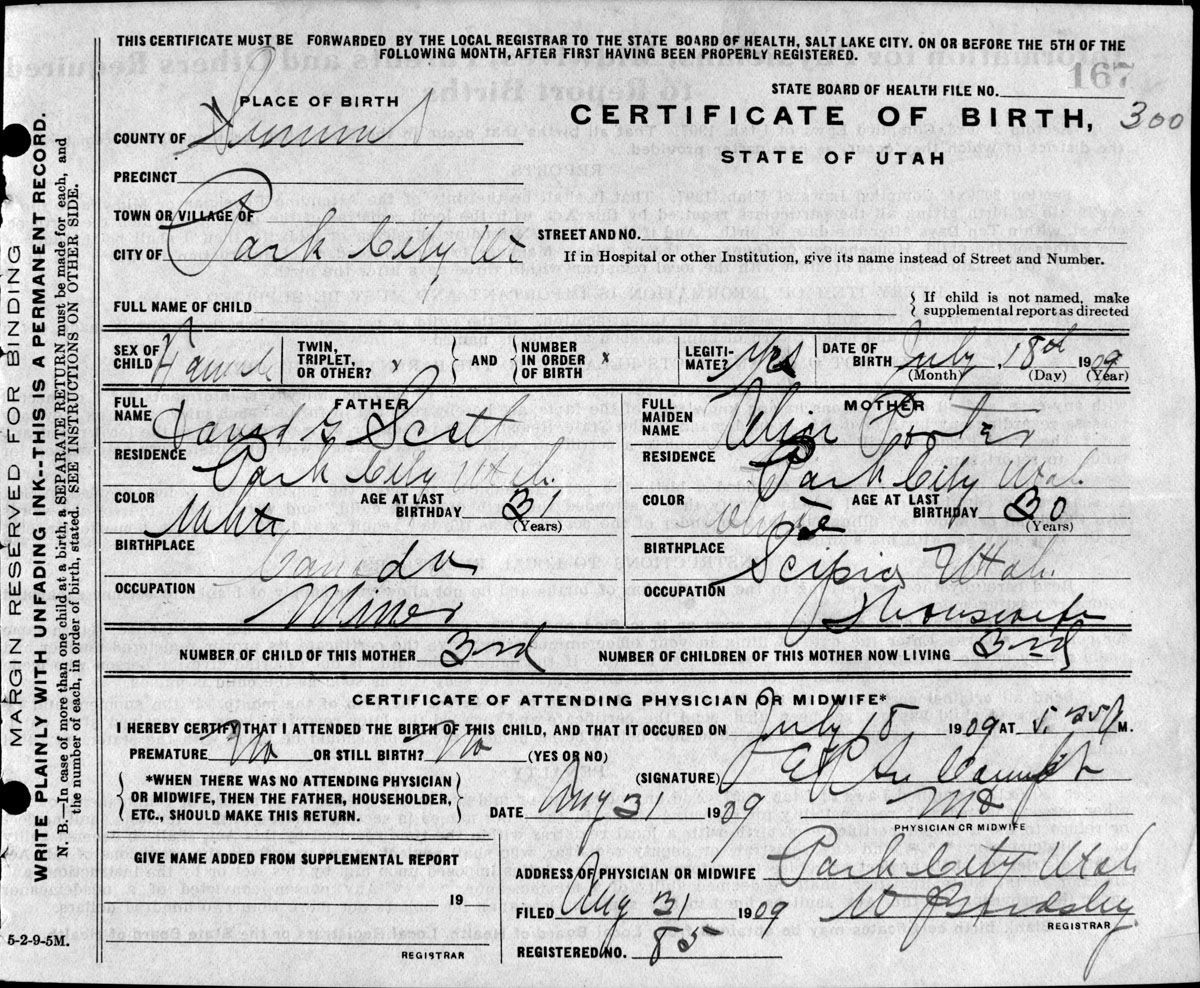 THIS CERTIFICATE MUST BE FORWARDED BY THE LOCAL REGISTRAR TO THE STATE BOARD OF HEALTH, SALT LAKE CITY. ON OR BEFORE THE 5TH OF THE
FOLLOWING MONTH, AFTER FIRST HAVING BEEN PROPERLY REGISTERED.
167
STATE BOARD OF HEALTH FILE NO.
PLACE OF BIRTH
CERTIFICATE OF BIRTH, 300
COUNTY OF Summit
STATE OF UTAH
PRECINCT
TOWN OR VILLAGE OF
STREET AND NO.
CITY OF Park City
If in Hospital or other Institution, give its name instead of Street and Number.
FULL NAME OF CHILD
{ If child is not named, make
supplemental report as directed
SEX OF CHILD Female
TWIN, TRIPLET, OR OTHER? } AND { NUMBER IN ORDER OF BIRTH x
LEGITIMATE? Yes
DATE OF BIRTH July, 18th 1909
(Month) (Day) (Year)
FATHER
FULL NAME David Scot
RESIDENCE Park City Utah
COLOR White AGE AT LAST BIRTHDAY 31
(Years)
BIRTHPLACE Canada
OCCUPATION Miner
MOTHER
FULL MAIDEN NAME
RESIDENCE Park City Utah
COLOR White AGE AT LAST BIRTHDAY 30
(Years)
BIRTHPLACE Scipio Utah
OCCUPATION Housewife
NUMBER OF CHILD OF THIS MOTHER 3rd NUMBER OF CHILDREN OF THIS MOTHER NOW LIVING 3rd
CERTIFICATE OF ATTENDING PHYSICIAN OR MIDWIFE*
I HEREBY CERTIFY THAT I ATTENDED THE BIRTH OF THIS CHILD, AND THAT IT OCCURED ON July 18 1909 AT M.
PREMATURE No OR STILL BIRTH? No (YES OR NO)
(SIGNATURE)
{ *WHEN THERE WAS NO ATTENDING PHYSICIAN
OR MIDWIFE, THEN THE FATHER, HOUSEHOLDER,
ETC., SHOULD MAKE THIS RETURN. }
DATE Aug 31 1909 MD
PHYSICIAN OR MIDWIFE
GIVE NAME ADDED FROM SUPPLEMENTAL REPORT
19
REGISTRAR
ADDRESS OF PHYSICIAN OR MIDWIFE Park City Utah
FILED Aug 31 1909
REGISTRAR
REGISTERED NO. 85
5-2-9-5M.
MARGIN RESERVED FOR BINDING
WRITE PLAINLY WITH UNFADING INK--THIS IS A PERMANENT RECORD.
N. B.—In case of more than one child at a birth, a SEPARATE RETURN must be made for each, and
the number of each, in order of birth, stated. SEE INSTRUCTIONS ON OTHER SIDE.